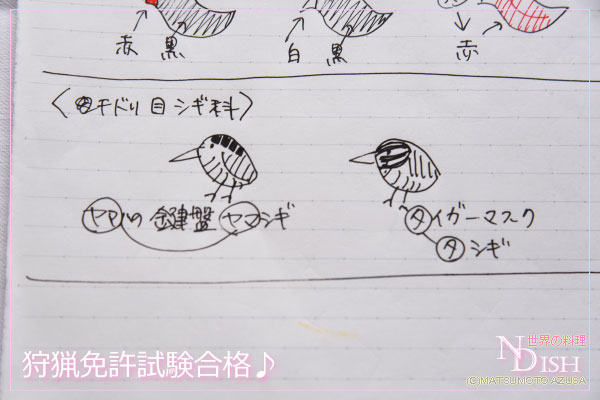 赤 黒 白 黒 赤
〈チドリ目シギ科〉
ヤマハの鍵盤ヤマシギ
タイガーマスク
タシギ
狩猟免許試験合格♪
世界の料理
NDISH
(C)MATSUMOTO AZUSA